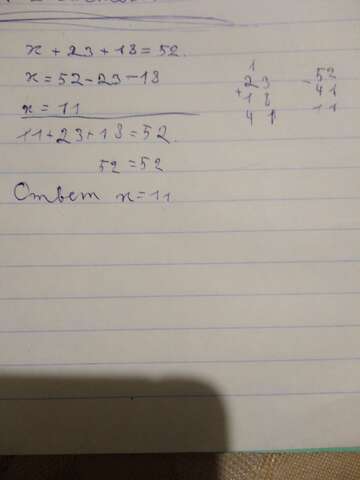 x + 23 + 18 = 52.
x = 52 - 23 - 18
x = 11
11 + 23 + 18 = 52.
52 = 52
Ответ x = 11
1
23
+ 18
41
- 52
41
11